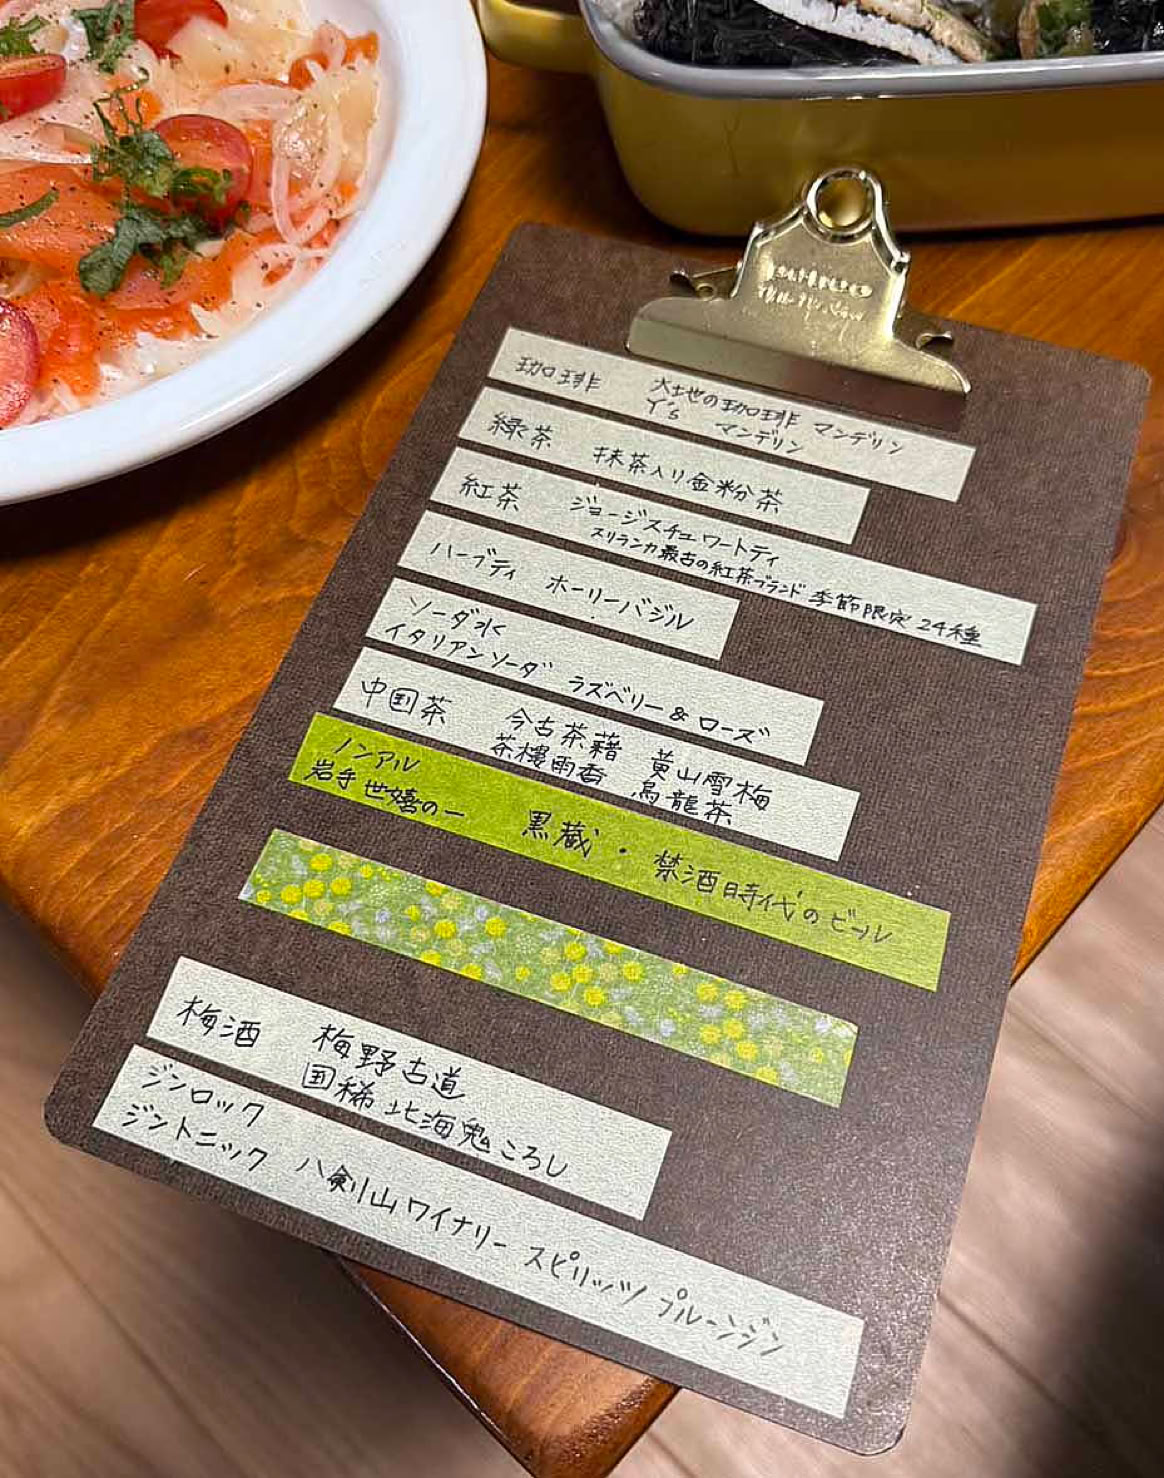 珈琲 大地の珈琲 マンデリン
Y's マンデリン
緑茶 抹茶入り金粉茶
紅茶 ジョージスチュワートティ
スリランカ最古の紅茶ブランド 季節限定 24種
ハーブティ ホーリーバジル
ソーダ水
イタリアンソーダ ラズベリー & ローズ
中国茶 今古茶藉 黄山雪梅
茶樓雨香 烏龍茶
ノンアル
岩手 世嬉の一 黒蔵・禁酒時代のビール
梅酒 梅野古道
国稀 北海鬼ころし
ジンロック
ジントニック 八剣山ワイナリー スピリッツ プルーンジン